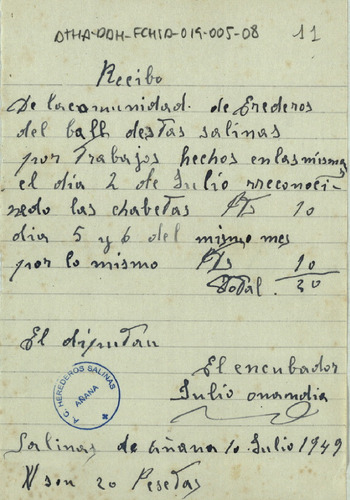 DTHA-DDH-FCHID-019-005-08 11
Recibo
De la comunidad de Erederos
del balle destas salinas
por trabajos hechos en las mismas
el dia 2 de Julio rreconoci-
nedo las chabetas Pts 10
dia 5 y 6 del mismo mes
por lo mismo Pts 10
Total. 20
El diputau
El encubador
Julio onaindia
T. C. HEREDEROS SALINAS
AÑANA
Salinas de Añana 10 Julio 1949
son 20 Pesetas